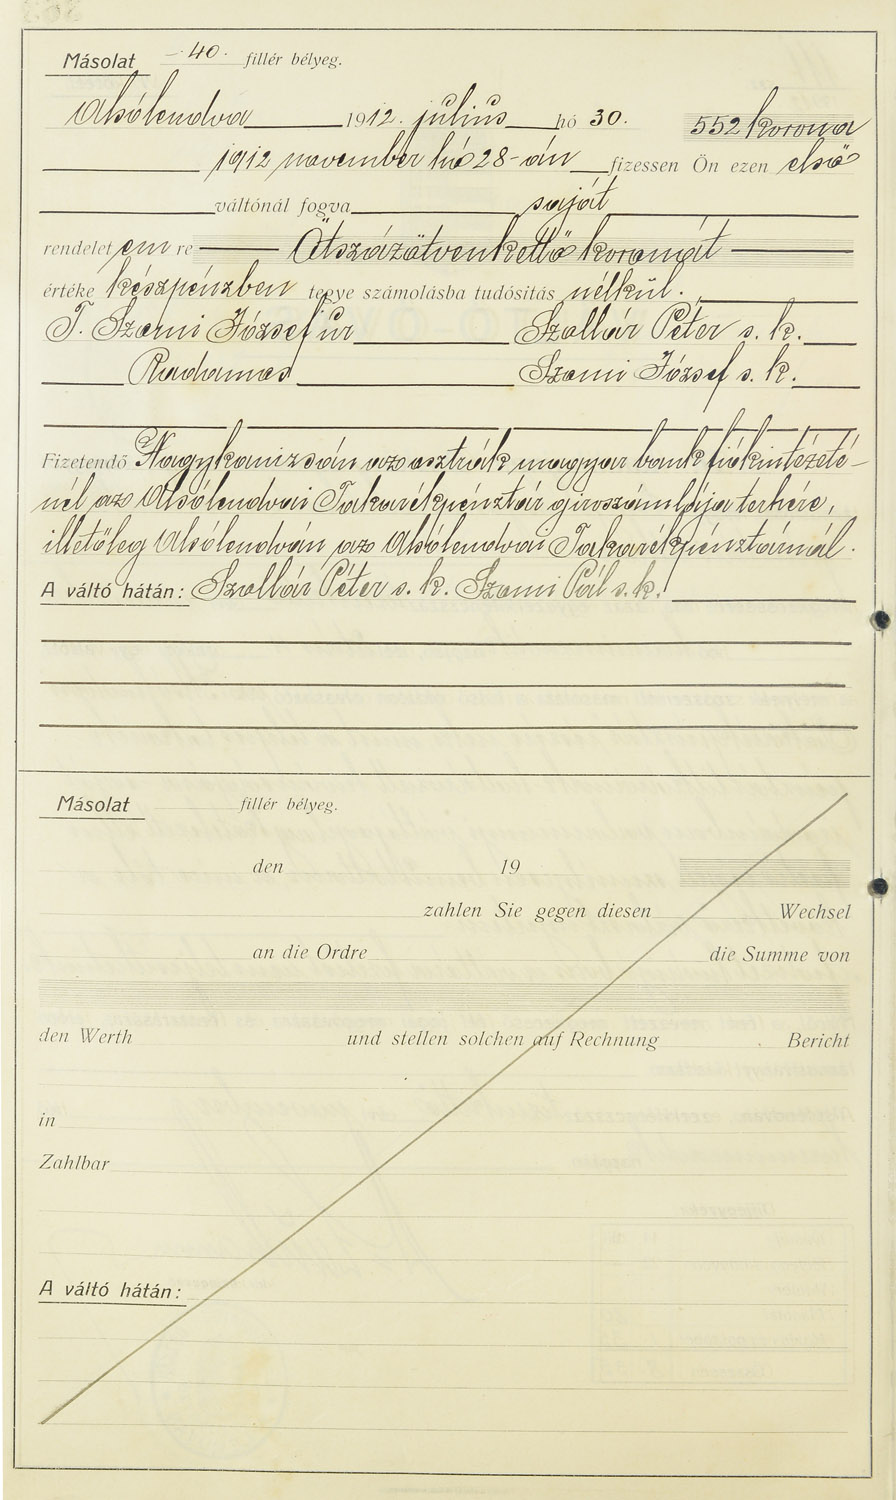 Másolat 40. fillér bélyeg.
Alsólendva 1912. július hó 30. 552 korona
1912 november hó 28-án fizessen Ön ezen első
váltónál fogva saját
rendelet em re Ötszázötvenkettő koronát
értéke készpénzben tegye számolásba tudósítás nélkül.
T. Szami József úr Szollár Péter s. k.
Radamos Szami József s. k.
Fizetendő Nagykanizsán az osztrák magyar bank fiókintézeté-
nél az Alsólendvai Takarékpénztár giroszámlája terhére,
illetőleg Alsólendván az Alsólendvai Takarékpénztárnál.
A váltó hátán: Szollár Péter s. k. Szami Pál s. k.
Másolat fillér bélyeg.
den 19
zahlen Sie gegen diesen Wechsel
an die Ordre die Summe von
den Werth und stellen solchen auf Rechnung Bericht
in
Zahlbar
A váltó hátán: